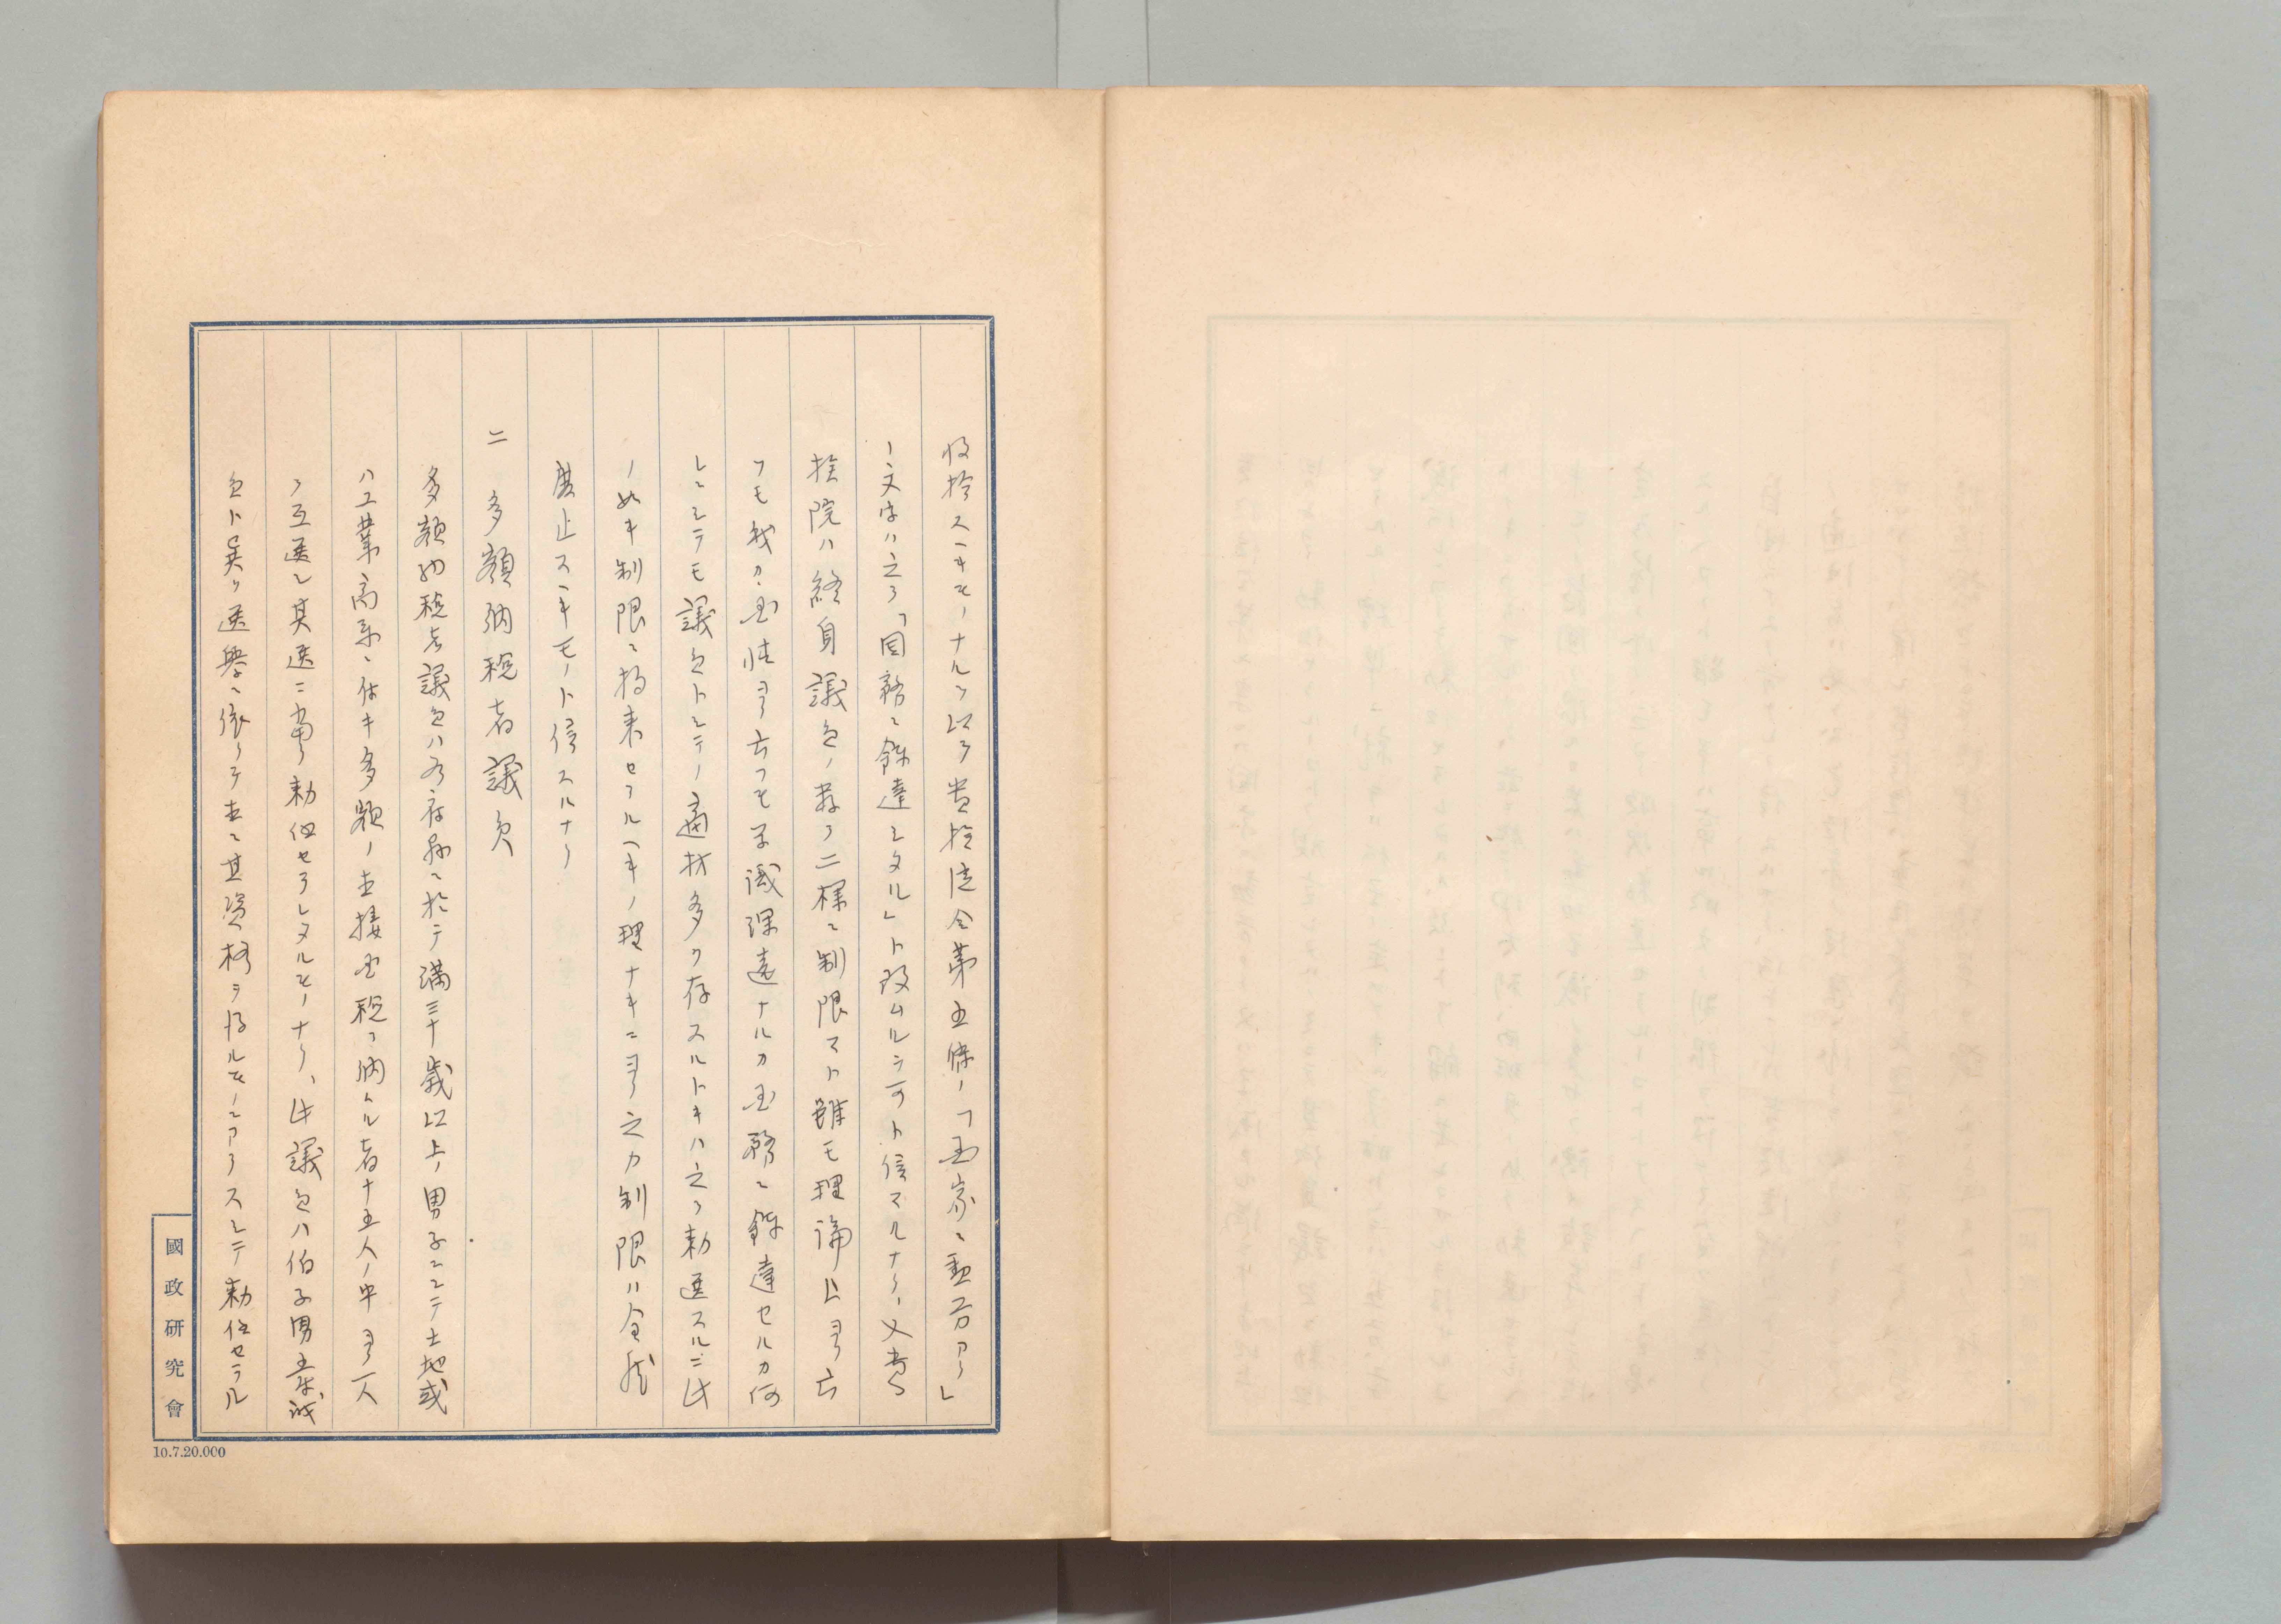 收拾スヘキモノナルヲ以テ貴族院令第五條ノ「国家ニ勳労アリ」
ノ文字ハ之ヲ「国務ニ錬達シタル」ト改ムルヲ可ト信スルナリ、又貴
族院ハ終身議員ノ数ヲ二様ニ制限スト雖モ理論上ヨリ云
フモ我カ国情ヨリ云フモ学識深遠ナルカ国務ニ錬達セルカ何
レニシテモ議員トシテノ適材多ク存スルトキハ之ヲ勅選スルニ此
ノ如キ制限ニ拘束セラルヘキノ理ナキニヨリ之カ制限ハ全然
廃止スヘキモノト信スルナリ
二 多額納税者議員
多額納税者議員ハ各府県ニ於テ満三十歳以上ノ男子ニシテ土地或
ハ工業商業ニ付キ多額ノ直接国税ヲ納ムル者十五人ノ中ヨリ一人
ヲ互選シ其選ニ当リ勅任セラレタルモノナリ、此議員ハ伯子男爵議
員ト異リ選挙ニ依リテ直ニ其資格ヲ得ルモノニアラスシテ勅任セラル
國政研究會
10.7.20.000